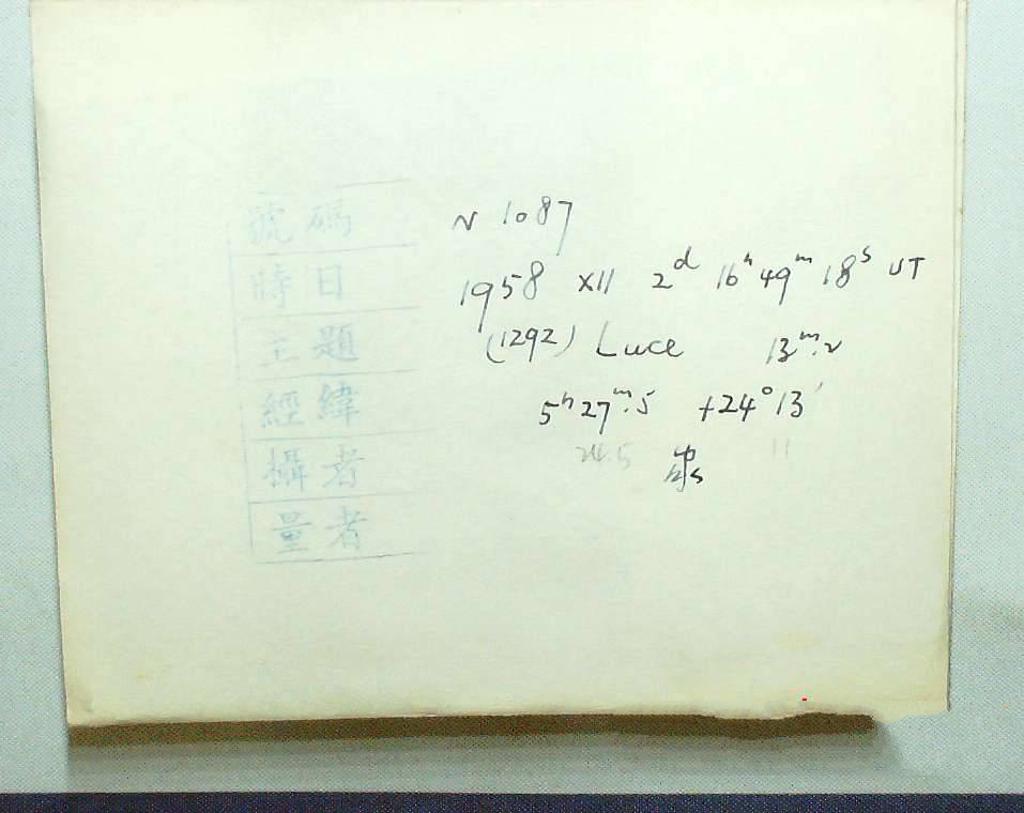 號碼 N 1087
時日 1958 XII 2ᵈ 16ʰ 49ᵐ 18ˢ UT
主題 (1292) Luce 13ᵐ.2
經緯 5ʰ 27ᵐ.5 +24°13′
攝者 24.5 11
量者